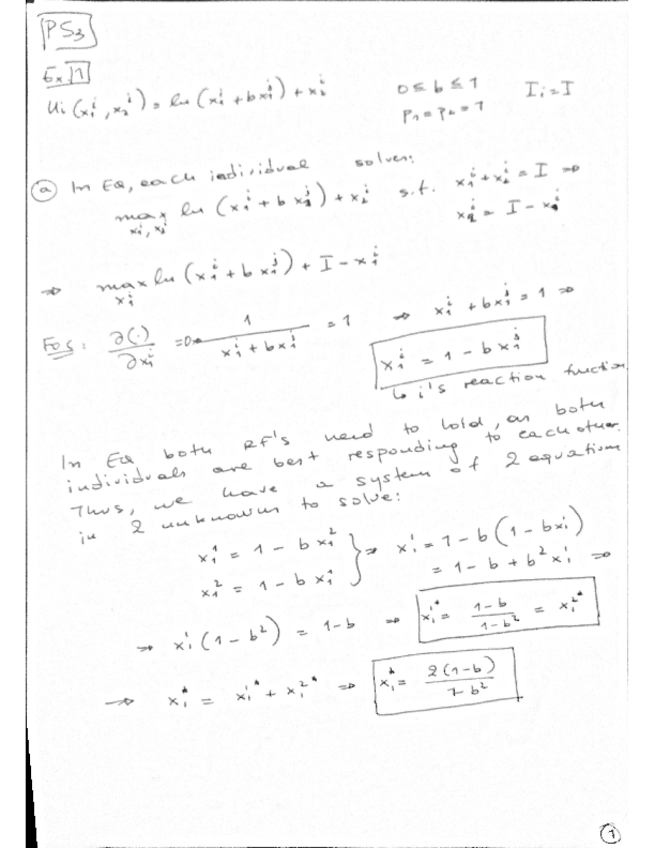 PS3
Ex 1
Ui (x₁ⁱ, x₂ⁱ) = ln (x₁ⁱ + bx₁ʲ) + x₂ⁱ 0 ≤ b ≤ 1 Iᵢ = I
p₁ = p₂ = 1
(a) In EQ, each individual solves:
max ln (x₁ⁱ + b x₁ʲ) + x₂ⁱ s.t. x₁ⁱ + x₂ⁱ = I ⇒
x₁ⁱ, x₂ⁱ x₂ⁱ = I - x₁ⁱ
⇒ max ln (x₁ⁱ + b x₁ʲ) + I - x₁ⁱ
x₁ⁱ
FOC: ∂(·)/∂x₁ⁱ = 0 ⇒ 1/(x₁ⁱ + bx₁ʲ) = 1 ⇒ x₁ⁱ + bx₁ʲ = 1 ⇒
x₁ⁱ = 1 - b x₁ʲ
↳ i's reaction function
In EQ both RF's need to hold, as both
individuals are best responding to each other.
Thus, we have a system of 2 equations
in 2 unknowns to solve:
x₁¹ = 1 - b x₁² } ⇒ x₁¹ = 1 - b (1 - bx₁¹)
x₁² = 1 - b x₁¹ = 1 - b + b² x₁¹ ⇒
⇒ x₁¹ (1 - b²) = 1 - b ⇒ x₁¹* = (1-b)/(1-b²) = x₁²*
⇒ x₁* = x₁¹* + x₁²* ⇒ x₁* = 2(1-b)/(1-b²)
1